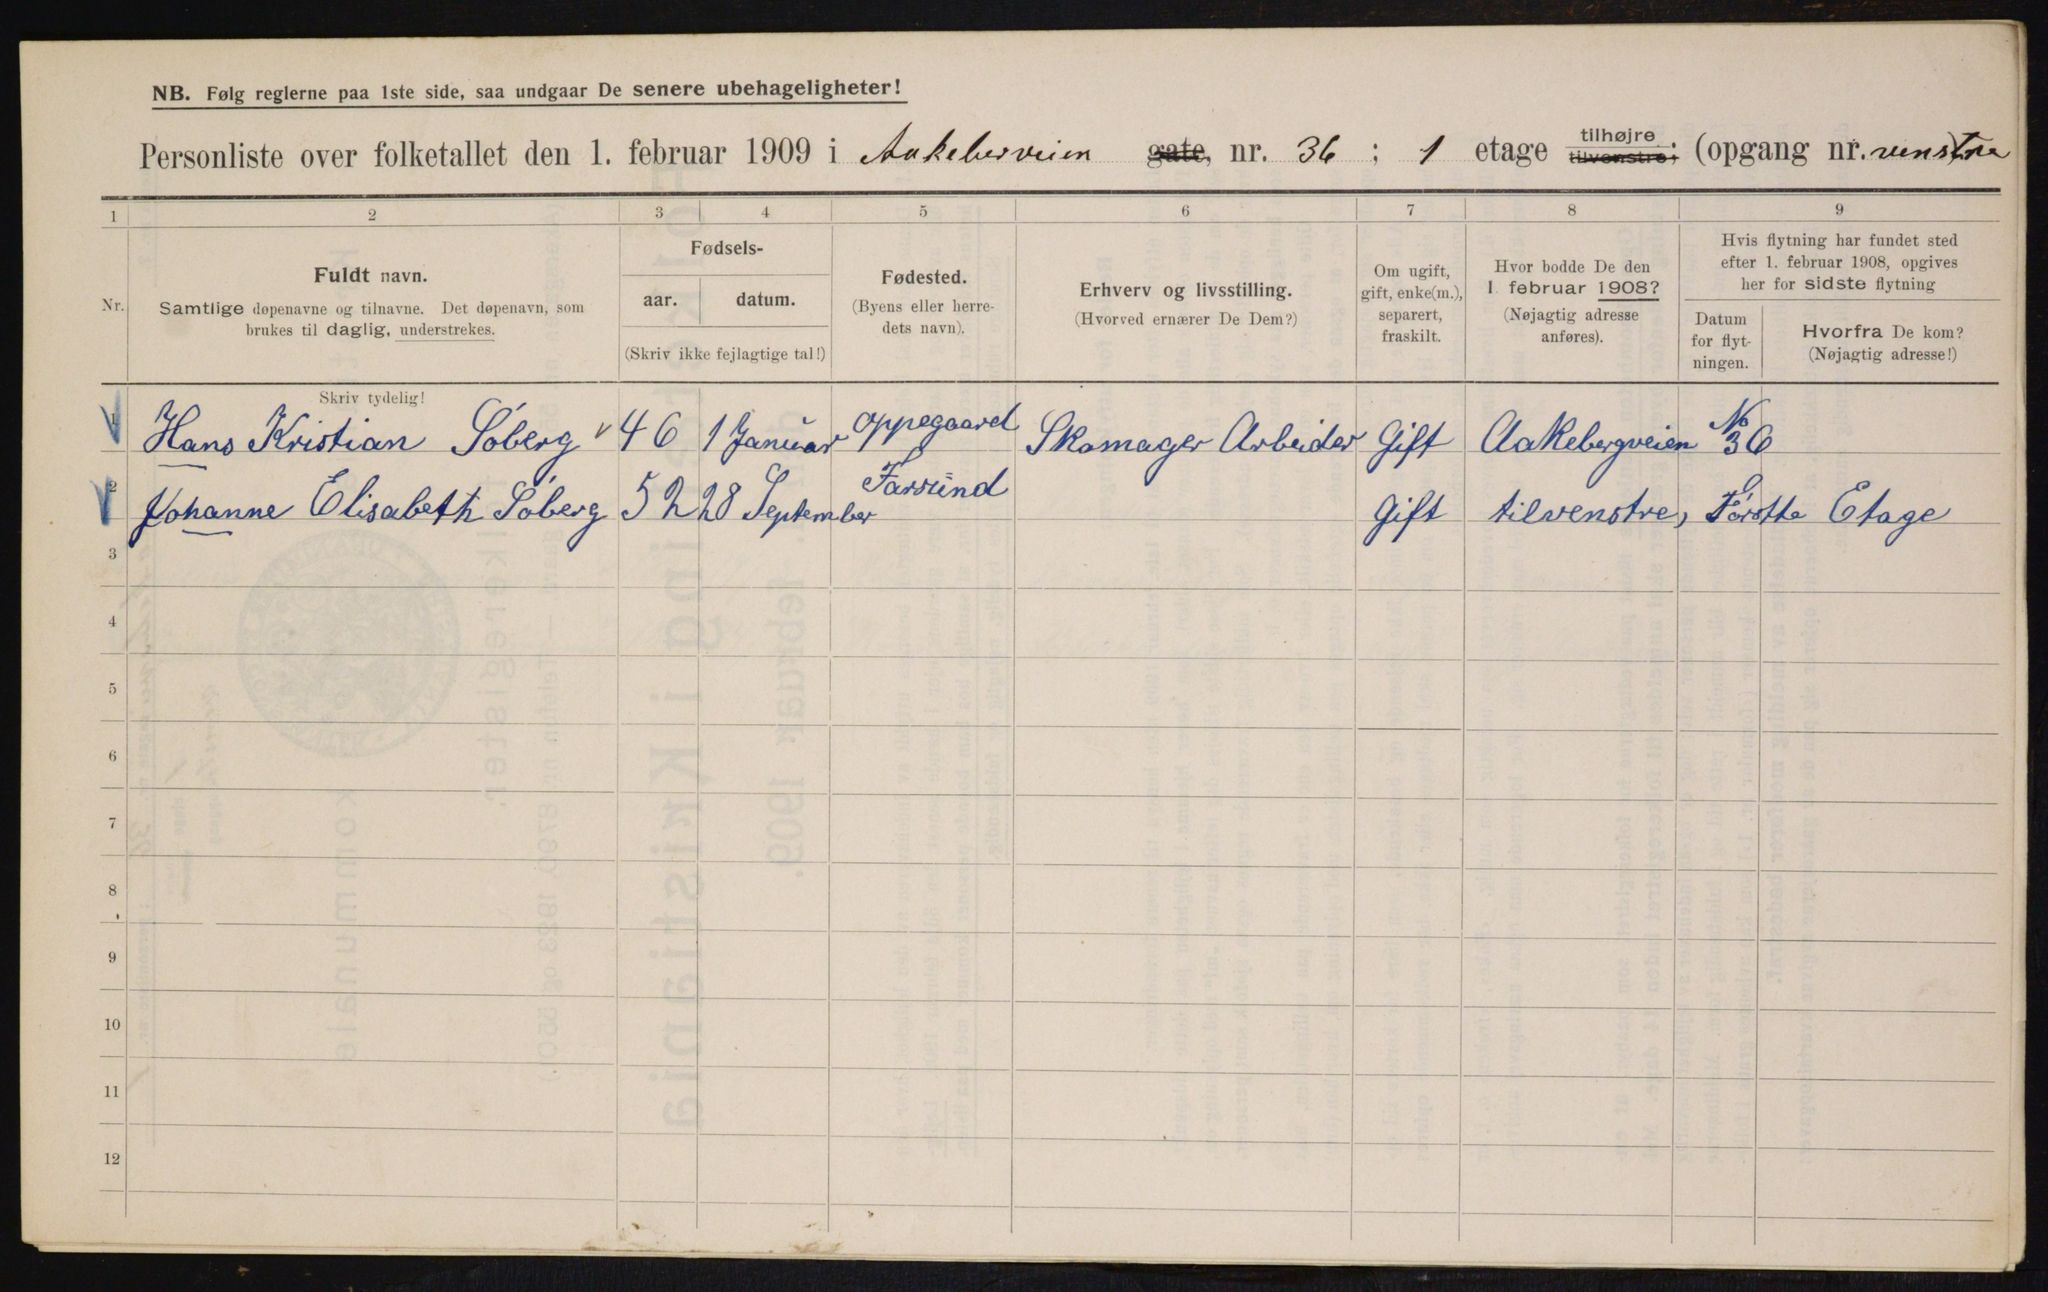 NB. Følg reglerne paa 1ste side, saa undgaar De senere ubehageligheter!
Personliste over folketallet den 1. februar 1909 i Aakeberveien gate, nr. 36 ; 1 etage tilhøjre tilvenstre; (opgang nr. venstre)
1 2 3 4 5 6 7 8 9
Nr.
Fuldt navn.
Samtlige døpenavne og tilnavne. Det døpenavn, som
brukes til daglig, understrekes.
Skriv tydelig!
Fødsels-
aar. datum.
(Skriv ikke fejlagtige tal!)
Fødested.
(Byens eller herre-
dets navn).
Erhverv og livsstilling.
(Hvorved ernærer De Dem?)
Om ugift,
gift, enke(m.),
separert,
fraskilt.
Hvor bodde De den
1. februar 1908?
(Nøjagtig adresse
anføres).
Hvis flytning har fundet sted
efter 1. februar 1908, opgives
her for sidste flytning
Datum
for flyt-
ningen.
Hvorfra De kom?
(Nøjagtig adresse!)
1 Hans Kristian Soberg 46 1 Januar Oppegaard Skomager Arbeider Gift Aakebergveien No 36
2 Johanne Elisabeth Soberg 52 28 September Farsund Gift tilvenstre, Forstte Etage
3
4
5
6
7
8
9
10
11
12